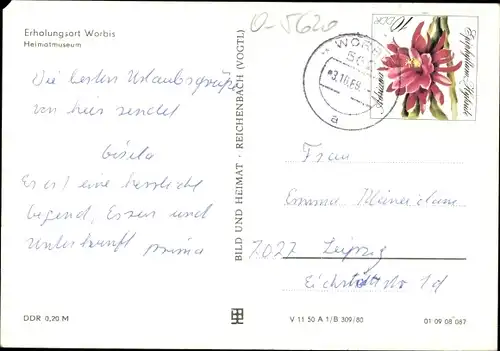 Erholungsort Worbis
Heimatmuseum
Die besten Urlaubsgrüße
von hier sendet
Gisela
Es ist eine herrliche
Gegend, Essen und
Unterkunft prima
DDR 0,20 M
BILD UND HEIMAT · REICHENBACH (VOGTL)
O-5620
WORB
a
10 DDR
Epiphyllum-Hybride
Frau
Emma
7027 Leipzig
1d
V 11 50 A 1/B 309/80
01 09 08 087